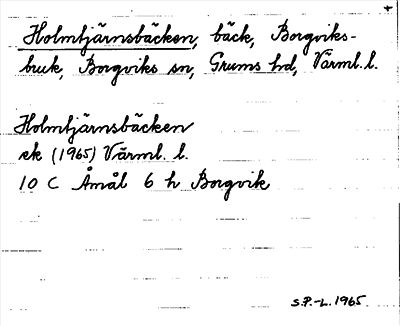 Holmtjärnsbäcken, bäck, Borgviks-
bruk, Borgviks sn, Grums hd, Värml. l.
Holmtjärnsbäcken
ek (1965) Värml. l.
10 C Åmål 6 h Borgvik
S.P.-L. 1965